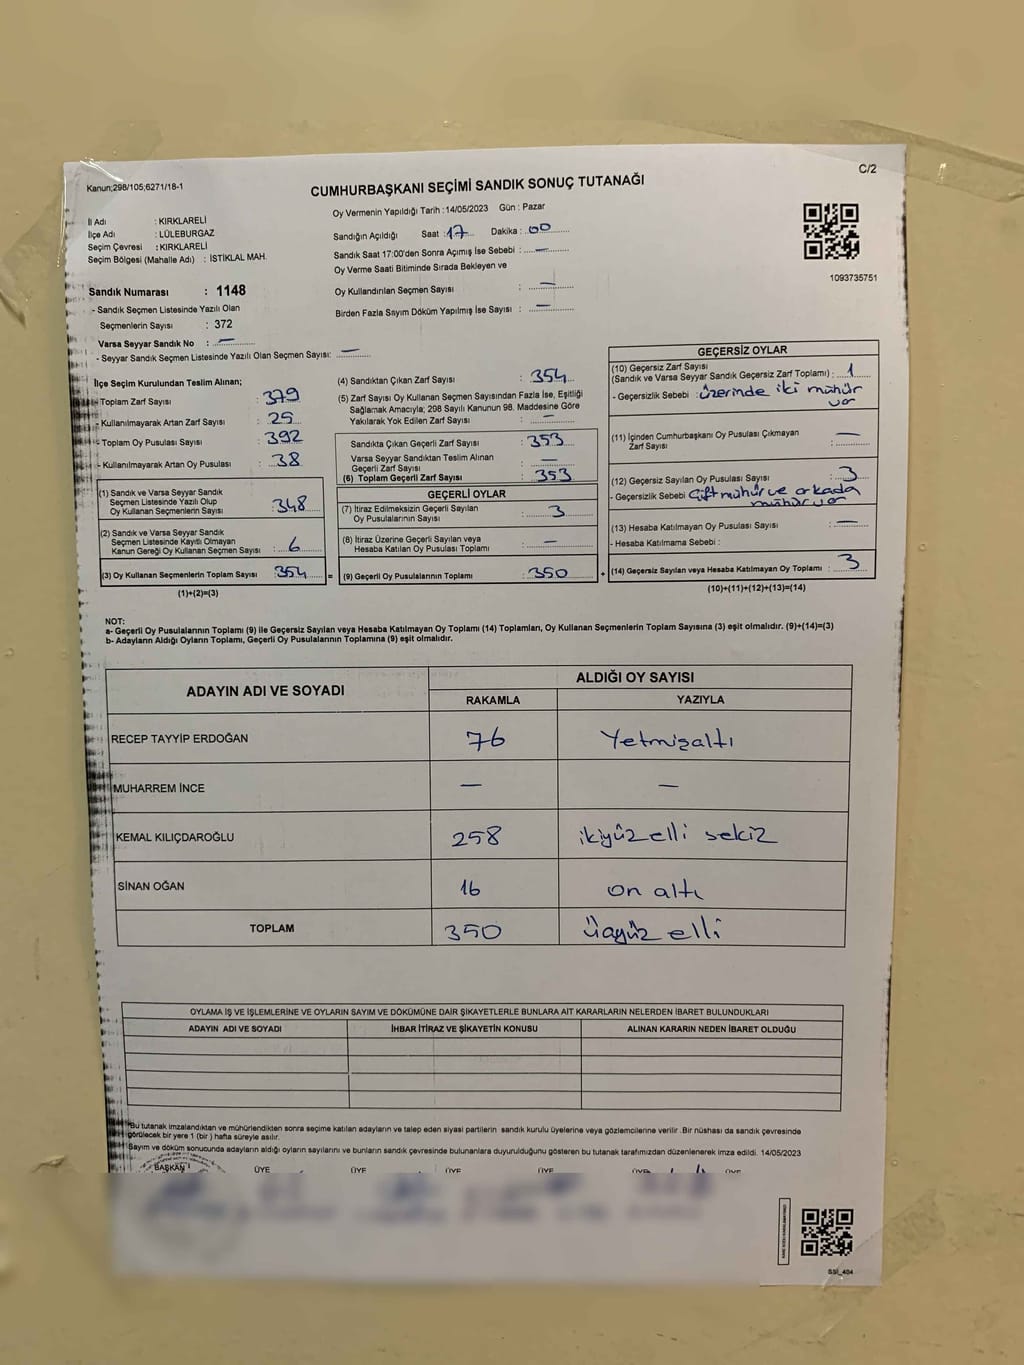 Kanun;298/105;6271/18-1
C/2
CUMHURBAŞKANI SEÇİMİ SANDIK SONUÇ TUTANAĞI
İl Adı : KIRKLARELİ
İlçe Adı : LÜLEBURGAZ
Seçim Çevresi : KIRKLARELİ
Seçim Bölgesi (Mahalle Adı) : İSTİKLAL MAH.
Sandık Numarası : 1148
- Sandık Seçmen Listesinde Yazılı Olan
Seçmenlerin Sayısı : 372
Varsa Seyyar Sandık No : —
- Seyyar Sandık Seçmen Listesinde Yazılı Olan Seçmen Sayısı: —
Oy Vermenin Yapıldığı Tarih :14/05/2023 Gün : Pazar
Sandığın Açıldığı Saat :17 Dakika : 00
Sandık Saat 17:00'den Sonra Açımış İse Sebebi : —
Oy Verme Saati Bitiminde Sırada Bekleyen ve
Oy Kullandırılan Seçmen Sayısı : —
Birden Fazla Sayım Döküm Yapılmış İse Sayısı : —
1093735751
İlçe Seçim Kurulundan Teslim Alınan;
- Toplam Zarf Sayısı : 379
- Kullanılmayarak Artan Zarf Sayısı : 25
- Toplam Oy Pusulası Sayısı : 392
- Kullanılmayarak Artan Oy Pusulası : 38
(1) Sandık ve Varsa Seyyar Sandık
Seçmen Listesinde Yazılı Olup
Oy Kullanan Seçmenlerin Sayısı : 348
(2) Sandık ve Varsa Seyyar Sandık
Seçmen Listesinde Kayıtlı Olmayan
Kanun Gereği Oy Kullanan Seçmen Sayısı : 6
(3) Oy Kullanan Seçmenlerin Toplam Sayısı : 354 =
(1)+(2)=(3)
(4) Sandıktan Çıkan Zarf Sayısı : 354
(5) Zarf Sayısı Oy Kullanan Seçmen Sayısından Fazla İse, Eşitliği
Sağlamak Amacıyla; 298 Sayılı Kanunun 98. Maddesine Göre
Yakılarak Yok Edilen Zarf Sayısı : —
Sandıkta Çıkan Geçerli Zarf Sayısı : 353
Varsa Seyyar Sandıktan Teslim Alınan
Geçerli Zarf Sayısı : —
(6) Toplam Geçerli Zarf Sayısı : 353
GEÇERLİ OYLAR
(7) İtiraz Edilmeksizin Geçerli Sayılan
Oy Pusulalarının Sayısı : 3
(8) İtiraz Üzerine Geçerli Sayılan veya
Hesaba Katılan Oy Pusulası Toplamı : —
(9) Geçerli Oy Pusulalarının Toplamı : 350 +
GEÇERSİZ OYLAR
(10) Geçersiz Zarf Sayısı
(Sandık ve Varsa Seyyar Sandık Geçersiz Zarf Toplamı) : 1
- Geçersizlik Sebebi : üzerinde iki mühür
var
(11) İçinden Cumhurbaşkanı Oy Pusulası Çıkmayan
Zarf Sayısı : —
(12) Geçersiz Sayılan Oy Pusulası Sayısı : 3
- Geçersizlik Sebebi : Çift mühür ve arkada
mühür var
(13) Hesaba Katılmayan Oy Pusulası Sayısı : —
- Hesaba Katılmama Sebebi :
(14) Geçersiz Sayılan veya Hesaba Katılmayan Oy Toplamı : 3
(10)+(11)+(12)+(13)=(14)
NOT:
a- Geçerli Oy Pusulalarının Toplamı (9) ile Geçersiz Sayılan veya Hesaba Katılmayan Oy Toplamı (14) Toplamları, Oy Kullanan Seçmenlerin Toplam Sayısına (3) eşit olmalıdır. (9)+(14)=(3)
b- Adayların Aldığı Oyların Toplamı, Geçerli Oy Pusulalarının Toplamına (9) eşit olmalıdır.
ADAYIN ADI VE SOYADI
ALDIĞI OY SAYISI
RAKAMLA YAZIYLA
RECEP TAYYİP ERDOĞAN 76 Yetmişaltı
MUHARREM İNCE — —
KEMAL KILIÇDAROĞLU 258 ikiyüz elli sekiz
SİNAN OĞAN 16 on altı
TOPLAM 350 Üçyüz elli
OYLAMA İŞ VE İŞLEMLERİNE VE OYLARIN SAYIM VE DÖKÜMÜNE DAİR ŞİKAYETLERLE BUNLARA AİT KARARLARIN NELERDEN İBARET BULUNDUKLARI
ADAYIN ADI VE SOYADI İHBAR İTİRAZ VE ŞİKAYETİN KONUSU ALINAN KARARIN NEDEN İBARET OLDUĞU
Bu tutanak imzalandıktan ve mühürlendikten sonra seçime katılan adayların ve talep eden siyasi partilerin sandık kurulu üyelerine veya gözlemcilerine verilir .Bir nüshası da sandık çevresinde
görülecek bir yere 1 (bir ) hafta süreyle asılır.
Sayım ve döküm sonucunda adayların aldığı oyların sayılarını ve bunların sandık çevresinde bulunanlara duyurulduğunu gösteren bu tutanak tarafımızdan düzenlenerek imza edildi. 14/05/2023
BAŞKAN ÜYE ÜYE ÜYE ÜYE ÜYE ÜYE
SSİ_404